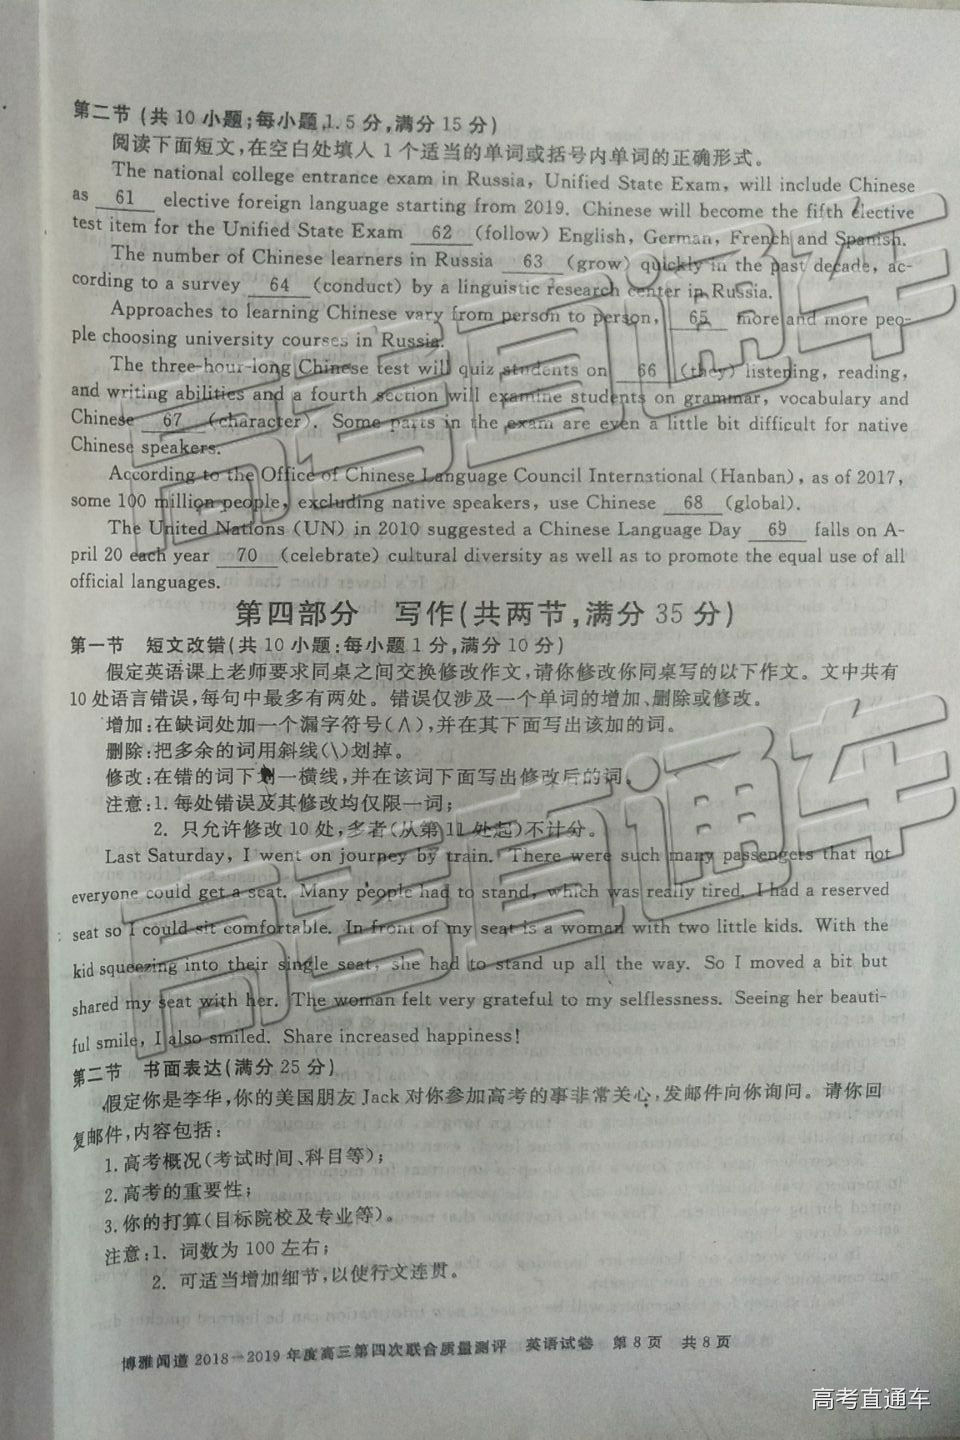 第二节 (共 10 小题;每小题 1.5 分,满分 15 分)
阅读下面短文,在空白处填入 1 个适当的单词或括号内单词的正确形式。
The national college entrance exam in Russia, Unified State Exam, will include Chinese
as 61 elective foreign language starting from 2019. Chinese will become the fifth elective
test item for the Unified State Exam 62 (follow) English, German, French and Spanish.
The number of Chinese learners in Russia 63 (grow) quickly in the past decade, ac-
cording to a survey 64 (conduct) by a linguistic research center in Russia.
Approaches to learning Chinese vary from person to person, 65 more and more peo-
ple choosing university courses in Russia.
The three-hour-long Chinese test will quiz students on 66 (they) listening, reading,
and writing abilities and a fourth section will examine students on grammar, vocabulary and
Chinese 67 (character). Some parts in the exam are even a little bit difficult for native
Chinese speakers.
According to the Office of Chinese Language Council International (Hanban), as of 2017,
some 100 million people, excluding native speakers, use Chinese 68 (global).
The United Nations (UN) in 2010 suggested a Chinese Language Day 69 falls on A-
pril 20 each year 70 (celebrate) cultural diversity as well as to promote the equal use of all
official languages.
第四部分 写作(共两节,满分 35 分)
第一节 短文改错(共 10 小题;每小题 1 分,满分 10 分)
假定英语课上老师要求同桌之间交换修改作文,请你修改你同桌写的以下作文。文中共有
10 处语言错误,每句中最多有两处。错误仅涉及一个单词的增加、删除或修改。
增加:在缺词处加一个漏字符号(∧),并在其下面写出该加的词。
删除:把多余的词用斜线(\)划掉。
修改:在错的词下划一横线,并在该词下面写出修改后的词。
注意:1. 每处错误及其修改均仅限一词;
2. 只允许修改 10 处,多者(从第 11 处起)不计分。
Last Saturday, I went on journey by train. There were such many passengers that not
everyone could get a seat. Many people had to stand, which was really tired. I had a reserved
seat so I could sit comfortable. In front of my seat is a woman with two little kids. With the
kid squeezing into their single seat, she had to stand up all the way. So I moved a bit but
shared my seat with her. The woman felt very grateful to my selflessness. Seeing her beauti-
ful smile, I also smiled. Share increased happiness!
第二节 书面表达(满分 25 分)
假定你是李华,你的美国朋友 Jack 对你参加高考的事非常关心,发邮件向你询问。请你回
复邮件,内容包括:
1. 高考概况(考试时间、科目等);
2. 高考的重要性;
3. 你的打算(目标院校及专业等)。
注意:1. 词数为 100 左右;
2. 可适当增加细节,以使行文连贯。
博雅闻道 2018—2019 年度高三第四次联合质量测评 英语试卷 第 8 页 共 8 页
高考直通车
高考直通车
高考直通车